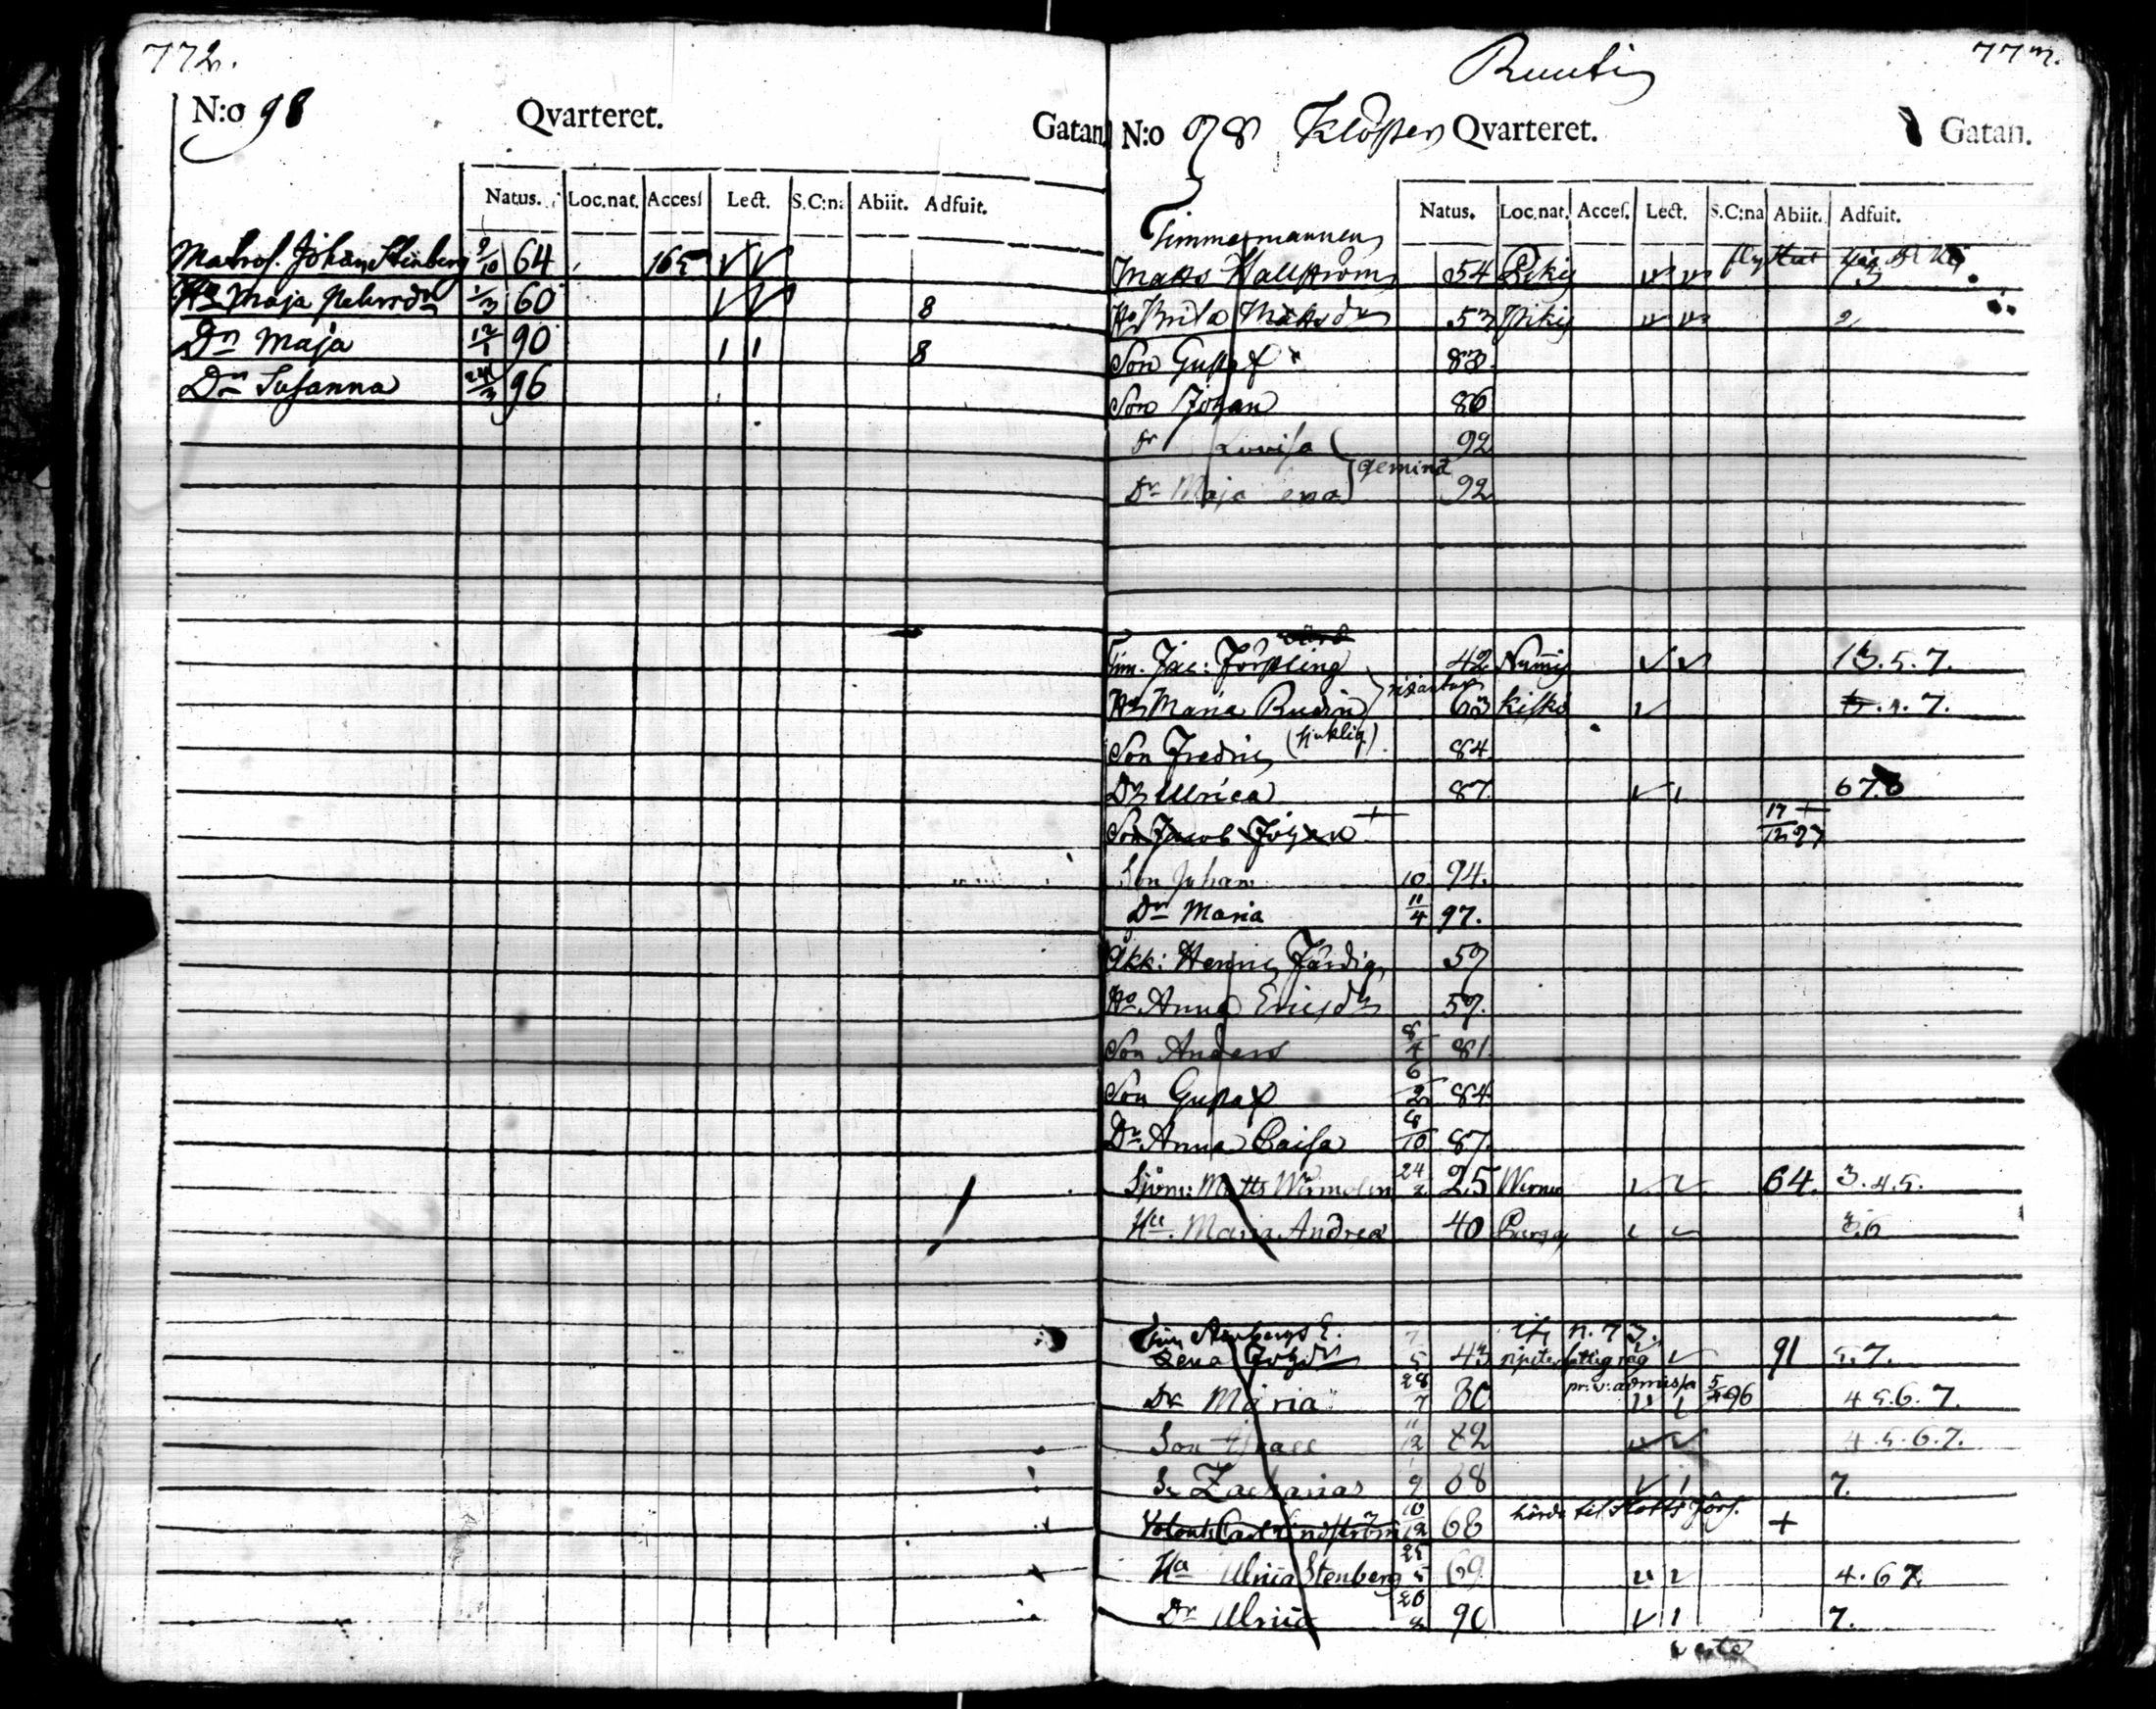 772.
N:o 98 Qvarteret. Gatan.
Natus. Loc.nat. Accesf Lect. S.C:na Abiit. Adfuit.
Matros. Johan Stenberg 9/10 64 165
Ha Maja Pehrsdr 1/3 60 8
Dr Maja 12/1 90 8
Dr Susanna 24/3 96
773.
Runti
N:o 98 Kloster Qvarteret. Gatan.
Natus. Loc.nat. Acces. Lect. S.C:na Abiit. Adfuit.
Timmermannen
Matts Hallström 54 Pikis flyttat
Ho Brita Mattsdr 53 Pikis 2
Son Gustaf 83.
Son Johan 86
dr Lovisa 92
gemina
Dr Maja Lena 92
Tim. Jac: Förstling 42 Numis 13.5.7.
Ho Maria Rudin 63 Kisko 7.
Son Fredric (sjuklig) 84.
Dr Ulrica 87. 67.8
Son Jacob Johan + 17/12 97 +
Son Johan 10 94.
Dr Maria 11/4 97.
Åkk: Henric Färdig 59
Ho Anna Ericsdr 59.
Son Anders 8/4 81.
Son Gustaf 6/2 84
Dr Anna Caisa 8/10 87.
Sjöm: Matts Wirmolin 24/2 25 Wirmo 64. 3.4.5.
Hu. Maria Andrea 40 3.6
Tim Stenbergs E. n. 77.
Lena Johsdr 7/5 43 91 5.7.
pr: v: admissa
Dr Maria 28/7 80 5/4 96 4 5.6.7.
Son Israel 11/12 82 4.5.6.7.
S. Zacharias 1/9 88 7.
Volont: Carl Lindström 10/12 68 hörde til Slotts förs. +
Ha Ulrica Stenberg 25/5 69. 4.6 7.
Dr Ulrica 26/8 90 7.
verte